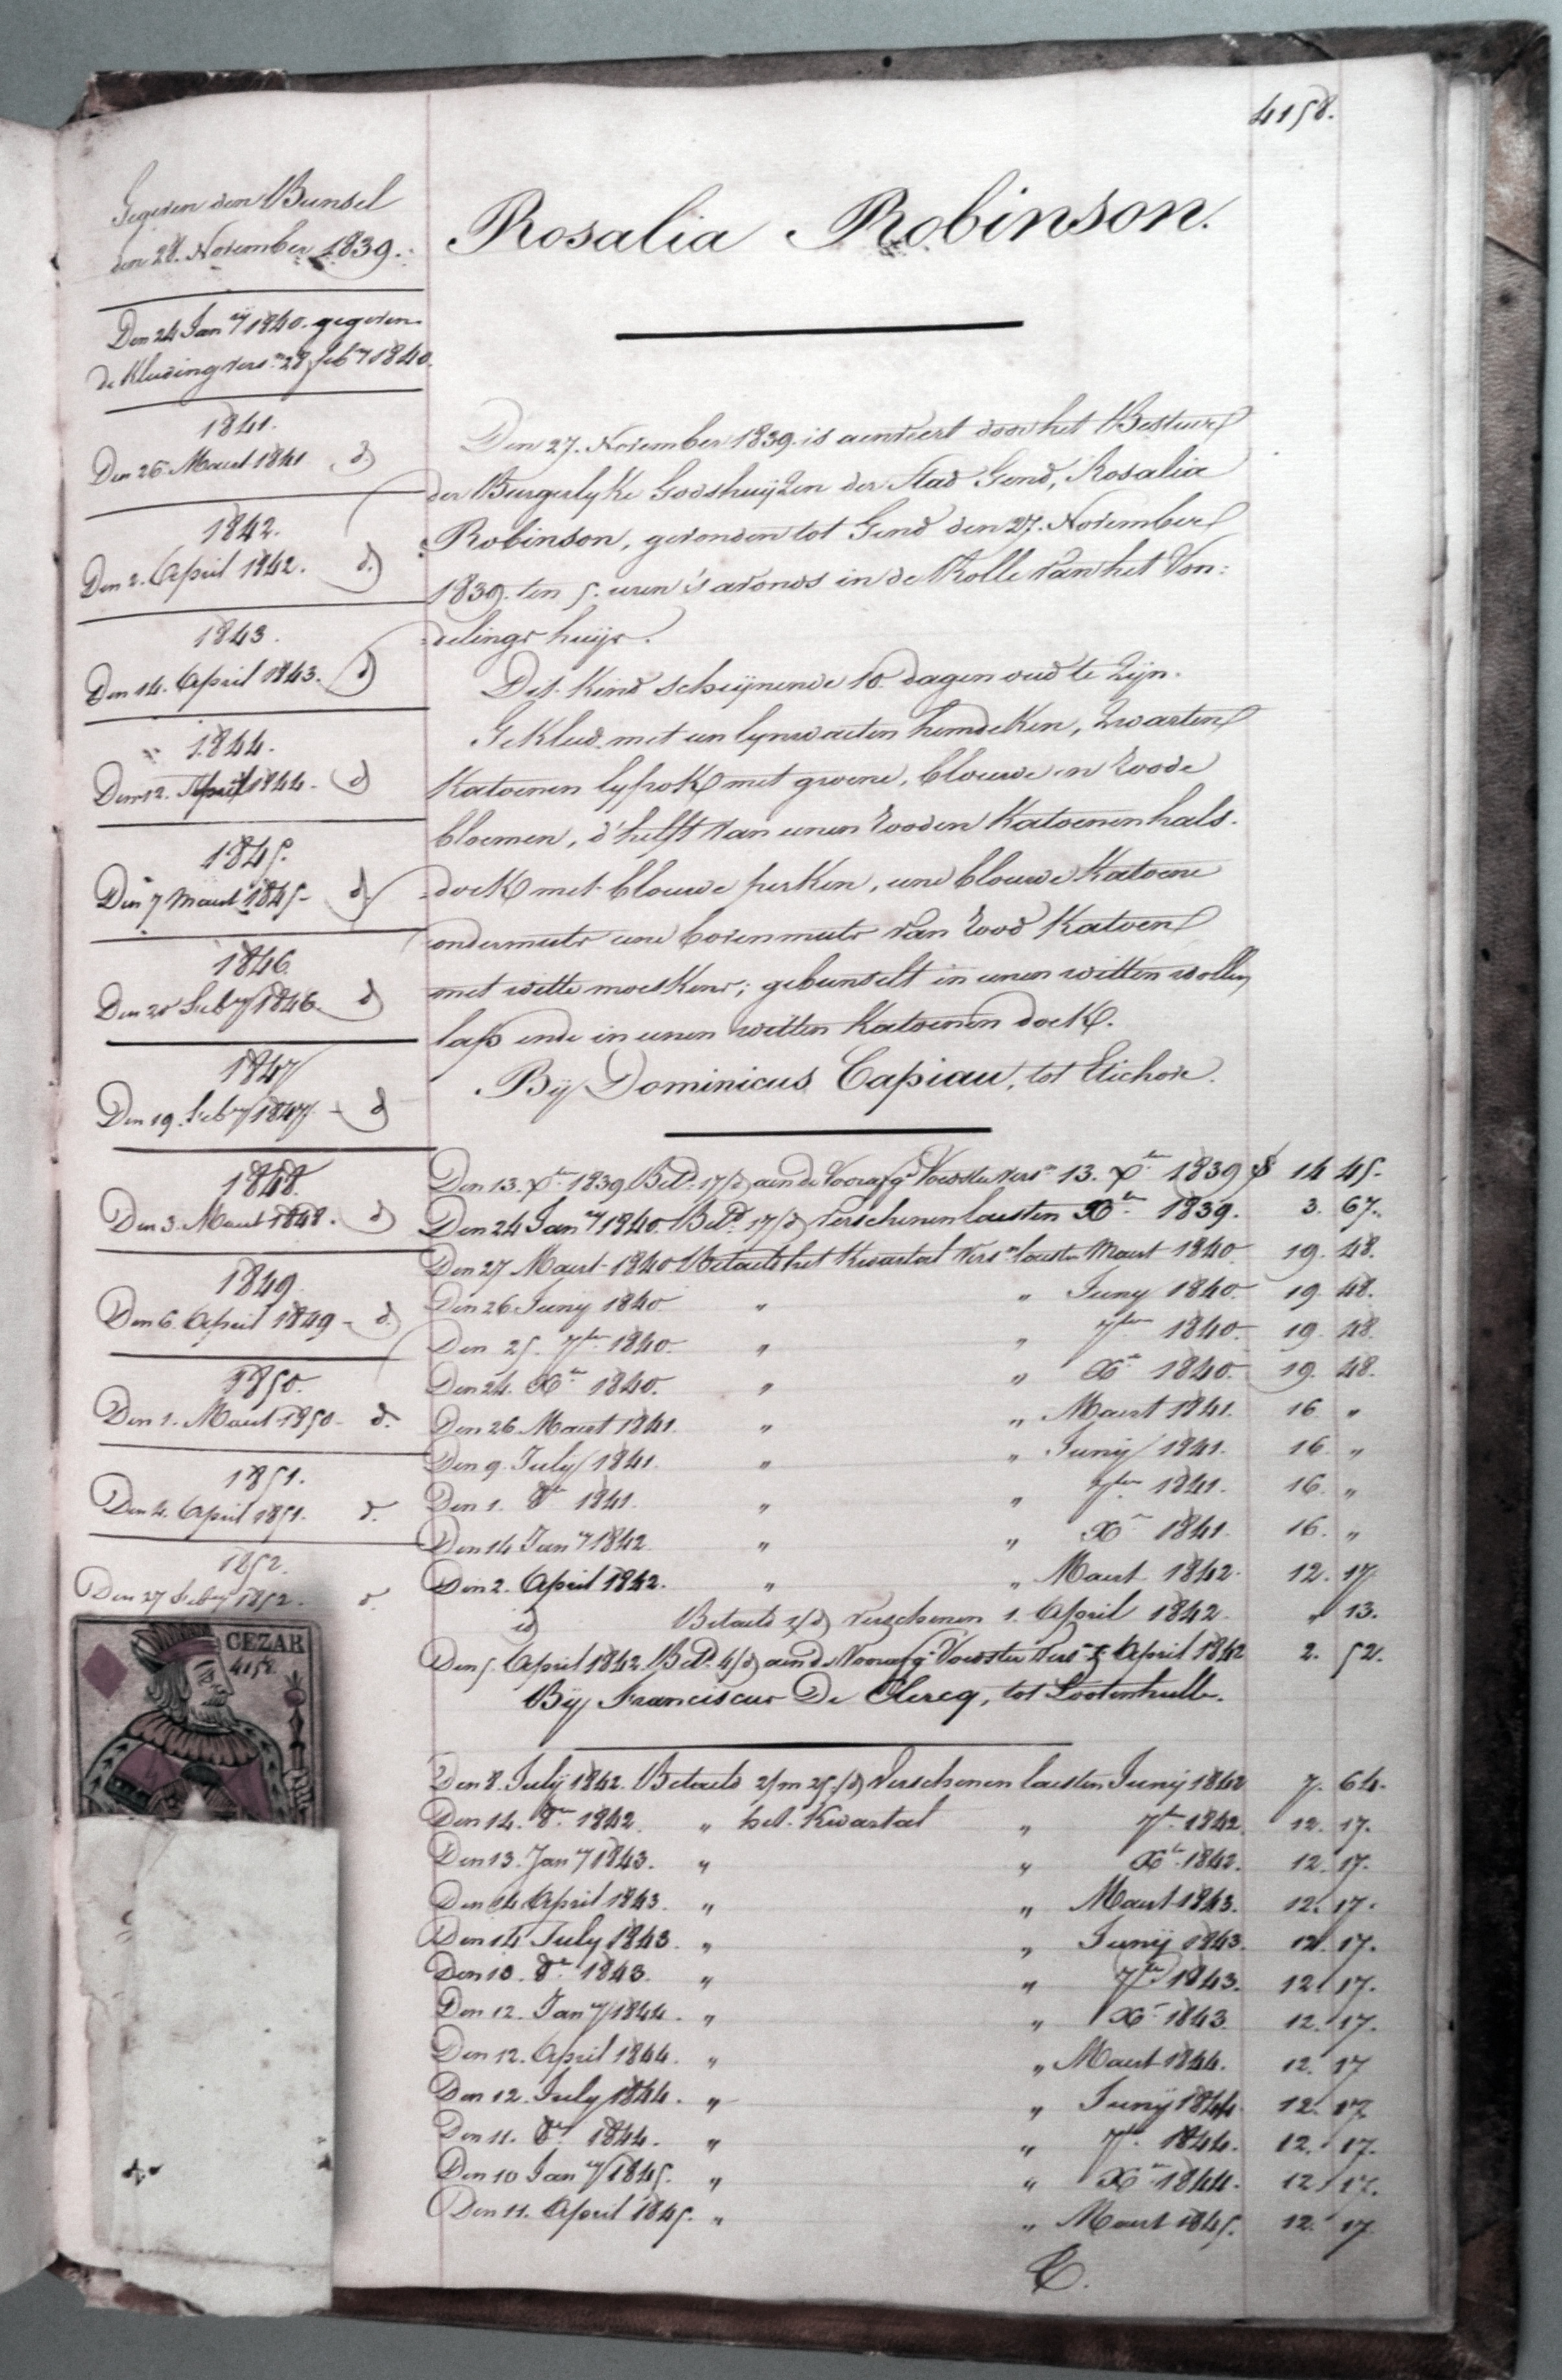 4158.
Rosalia Robinson.
Gegeven den Bunsel
den 28. November 1839.
Den 24 Jan.ry 1840. gegeven
de Kleeding vers.n 28 feb.ry 1840.
1841.
Den 26 Maert 1841 d)
1842.
Den 2. April 1842. d)
1843.
Den 14. April 1843. d)
1844.
Den 12. April 1844. d)
1845.
Den 7 Maert 1845 - d)
1846.
Den 20 Feb.ry 1846. d)
1847
Den 19. Feb.ry 1847 - d)
1848.
Den 3. Maert 1848. d)
1849.
Den 6. April 1849 - d)
1850.
Den 1. Maert 1850 - d.
1851.
Den 4. April 1851. d.
1852.
Den 27 Feb.ry 1852. d.
CEZAR
4158.
Den 27. November 1839. is aenveert door het Bestuur
der Burgerlyke Godshuijzen der Stad Gend, Rosalia
Robinson, gevonden tot Gend den 27. November
1839. ten 5. uren 's avonds in de Rolle van het Von:
:delings huijs.
Dit Kind scheijnende 10 dagen oud te Zyn.
Gekleed met een lynwaeten hemdeken, Zwarten
Katoenen lyfrok met groene, blouwe en roode
bloemen, d'helft van eenen rooden Katoenen hals-
doek met blouwe perken, eene blouwe Katoene
ondermuts eene bovenmuts van rood Katoen
met witte moeskens; gebunselt in eenen witten wollen
lap ende in eenen witten Katoenen doek.
Bij Dominicus Capiau, tot Etichove.
Den 13. X.er 1839 Bet.d 17/d) aen de Vooraf.g Voedster vers.n 13. X.er 1839 14 45.
Den 24 Jan.ry 1840. Bet.d 17/d) Verschenen laesten X.er 1839. 3. 67.
Den 27 Maert 1840 Betaeld het Kwartal Vers.n laesten Maert 1840 19. 48.
Den 26 Juny 1840 " " Juny 1840 19 48.
Den 25. 7.ber 1840. " " 7.ber 1840. 19. 48.
Den 24. X.er 1840. " " X.er 1840. 19. 48.
Den 26 Maert 1841. " " Maert 1841. 16 "
Den 9. July 1841. " " Junij 1841. 16. "
Den 1. 8.er 1841. " " 7.ber 1841. 16. "
Den 14 Jan.ry 1842. " " X.er 1841. 16. "
Den 2. April 1842. " " Maert 1842. 12. 17
id) Betaeld 1/d) verschenen 1. April 1842. " 13.
Den 5. April 1842. Bet.d 4/d) aen de Vooraf.g Voedster Vers.n 5 April 1842 2. 52.
Bij Franciscus De Clercq, tot Lootenhulle.
Den 8. Julij 1842. Betaeld 2/m 25/d) Verschenen laesten Junij 1842 7. 64.
Den 14. 8.er 1842. " het Kwartal " 7.ber 1842. 12. 17.
Den 13. Jan.ry 1843. " " X.er 1842. 12. 17.
Den 14 April 1843. " " Maert 1843. 12. 17.
Den 14 July 1843. " " Junij 1843. 12. 17.
Den 13. 8.er 1843. " " 7.ber 1843. 12. 17.
Den 12. Jan.ry 1844. " " X.er 1843. 12. 17.
Den 12. April 1844. " " Maert 1844. 12. 17
Den 12. July 1844. " " Junij 1844. 12. 17.
Den 11. 8.er 1844. " " 7.ber 1844. 12. 17.
Den 10 Jan.ry 1845. " " X.er 1844. 12 17.
Den 11. April 1845. " " Maert 1845. 12. 17